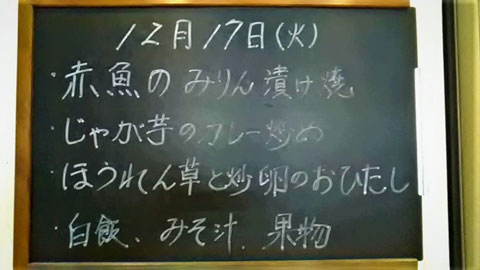 12月17日(火)
・赤魚のみりん漬け焼
・じゃが芋のカレー炒め
・ほうれん草と炒卵のおひたし
・白飯、みそ汁、果物